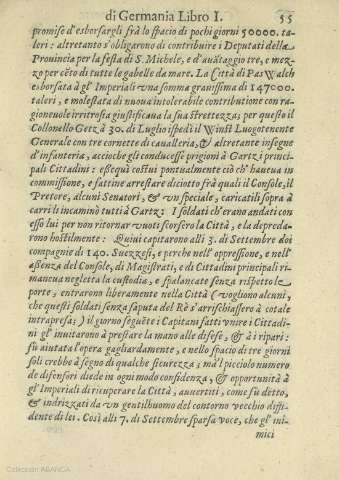 di Germania Libro I. 55
promise d'esborsargli frà lo spacio di pochi giorni 50000. ta-
leri: altretanto s'obligarono di contribuire i Deputati della
Provincia per la festa di S. Michele, e d'avãtaggio tre, e mez-
zo per cẽto di tutte le gabelle da mare. La Città di Pas Walch
esborsata à gl'Imperiali vna somma grauissima di 147000.
taleri, e molestata di nuoua intolerabile contributione con ra-
gioneuole irritrosia giustificana la sua strettezza; per questo il
Collonello Getz à 30. di Luglio ispedì il Winst Luogotenente
Generale con tre cornette di caualleria, & altretante insegne
d'infanteria, accioche gli conducesse prigioni à Gartz i princi-
pali Cittadini: essequì costui pontualmente ciò ch'haueua in
commissione, e fattine arrestare diciotto frà quali il Console, il
Pretore, alcuni Senatori, & vn speciale, caricatili sopra à
carri li incaminò tutti à Gartz: I soldati ch'erano andati con
esso lui per non ritornar vuoti scorsero la Città, e la depreda-
rono hostilmente: Quiui capitarono alli 3. di Settembre doi
compagnie di 140. Suezzesi, e perche nell'oppressione, e nell'
assenza del Console, di Magistrati, e di Cittadini principali ri-
maneua neglecta la custodia, e spalancate senza rispetto le
porte, entrarono liberamente nella Città (vogliono alcuni,
che questi soldati senza saputa del Rè s'arrischiassero à cotale
intrapresa;) il giorno seguẽte i Capitani fatti vnire i Cittadi-
ni gl'inuitarono à prestare la mano alle difese, & à i ripari:
fù aiutata l'opera gagliardamente, e nello spacio di tre giorni
soli crebbe à segno di qualche sicurezza; mà l'picciolo numero
de difensori diede in ogni modo confidenza, & opportunità à
gl'Imperiali di ricuperare la Città, auuertiti, come fù detto,
& indrizzati da vn gentilhuomo del contorno vecchio diffi-
dente di lei. Così alli 7. di Settembre sparsa voce, che gl'ini-
mici
Colección ABANCA